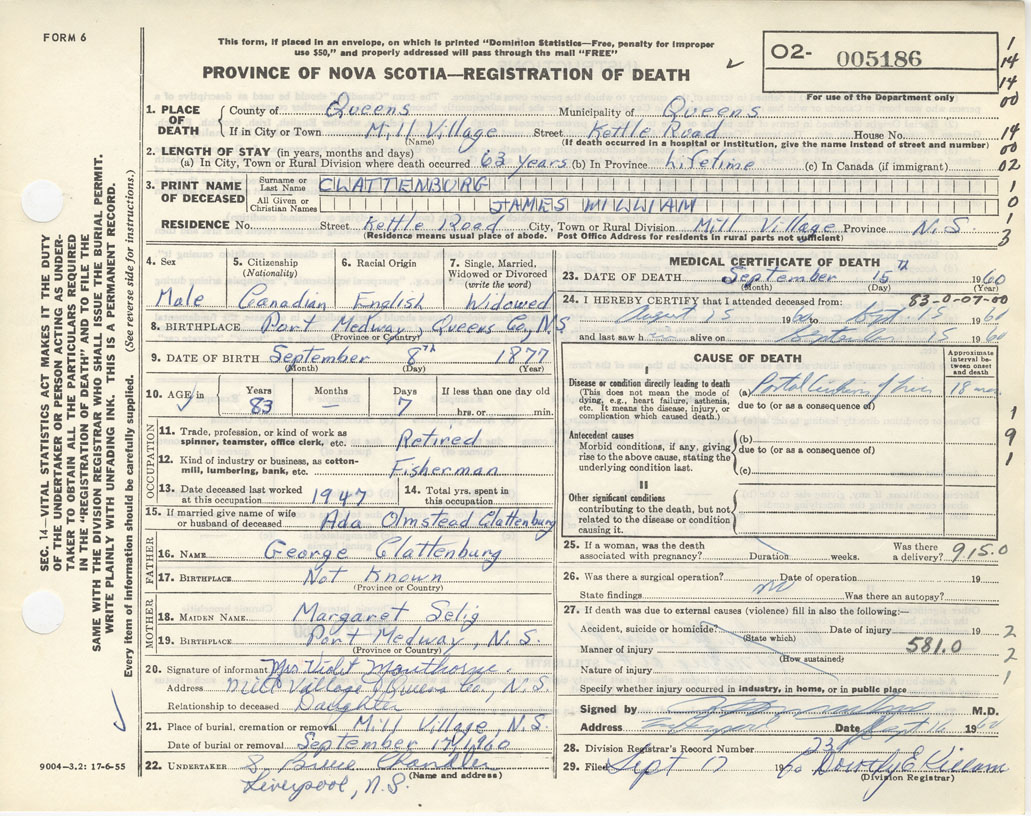 FORM 6
This form, if placed in an envelope, on which is printed "Dominion Statistics—Free, penalty for improper
use $50," and properly addressed will pass through the mail "FREE"
PROVINCE OF NOVA SCOTIA—REGISTRATION OF DEATH
02- 005186
For use of the Department only
1
14
14
00
14
00
02
1
0
1
3
1. PLACE OF DEATH County of Queens Municipality of Queens
If in City or Town Mill Village Street Kettle Road House No.
(Name) (If death occurred in a hospital or Institution, give the name instead of street and number)
2. LENGTH OF STAY (in years, months and days)
(a) In City, Town or Rural Division where death occurred 63 years (b) In Province Lifetime (c) In Canada (if immigrant)
3. PRINT NAME OF DECEASED Surname or Last Name CLATTENBURG
All Given or Christian Names JAMES MILLWIAM
RESIDENCE No. Street Kettle Road City, Town or Rural Division Mill Village Province N.S.
(Residence means usual place of abode. Post Office Address for residents in rural parts not sufficient)
4. Sex Male
5. Citizenship (Nationality) Canadian
6. Racial Origin English
7. Single, Married, Widowed or Divorced (write the word) Widowed
8. BIRTHPLACE Port Medway, Queens Co., N.S
(Province or Country)
9. DATE OF BIRTH September 8th 1877
(Month) (Day) (Year)
10. AGE in Years 83 Months — Days 7 If less than one day old hrs. or min.
OCCUPATION
11. Trade, profession or kind of work as spinner, teamster, office clerk, etc. Retired
12. Kind of industry or business, as cotton-mill, lumbering, bank, etc. Fisherman
13. Date deceased last worked at this occupation. 1947
14. Total yrs. spent in this occupation
15. If married give name of wife or husband of deceased Ada Olmstead Clattenburg
FATHER
16. NAME George Clattenburg
17. BIRTHPLACE Not Known
(Province or Country)
MOTHER
18. MAIDEN NAME Margaret Selig
19. BIRTHPLACE Port Medway, N.S.
(Province or Country)
20. Signature of informant Mrs Violet
Address Mill Village Queens Co., N.S.
Relationship to deceased Daughter
21. Place of burial, cremation or removal Mill Village, N.S.
Date of burial or removal September 17, 1960
22. UNDERTAKER S. Bruce Chandler
(Name and address)
Liverpool, N.S.
MEDICAL CERTIFICATE OF DEATH
23. DATE OF DEATH September 15th 1960
(Month) (Day) (Year)
83-0-07-00
24. I HEREBY CERTIFY that I attended deceased from:
August 15 1960 to Sept 15 1960
and last saw h alive on September 15 1960
CAUSE OF DEATH
Approximate interval between onset and death
I
Disease or condition directly leading to death
(This does not mean the mode of dying, e.g., heart failure, asthenia, etc. It means the disease, injury, or complication which caused death.)
(a) Portal Cirrhosis of liver 18 mos
due to (or as a consequence of)
Antecedent causes
Morbid conditions, if any, giving rise to the above cause, stating the underlying condition last.
(b)
due to (or as a consequence of)
(c)
II
Other significant conditions
contributing to the death, but not related to the disease or condition causing it.
1
9
1
25. If a woman, was the death associated with pregnancy? Duration weeks. Was there a delivery? 915.0
26. Was there a surgical operation? no Date of operation 19
State findings Was there an autopsy?
27. If death was due to external causes (violence) fill in also the following:—
Accident, suicide or homicide? Date of injury 19
(State which)
Manner of injury 581.0
(How sustained)
Nature of injury
2
2
1
Specify whether injury occurred in industry, in home, or in public place
Signed by M.D.
Address Date Sept 16 1960
28. Division Registrar's Record Number 23
29. Filed Sept 17 1960 Dorothy E Killam
(Division Registrar)
SEC. 14—VITAL STATISTICS ACT MAKES IT THE DUTY
OF THE UNDERTAKER OR PERSON ACTING AS UNDER-
TAKER TO OBTAIN ALL THE PARTICULARS REQUIRED
IN THE "REGISTRATION OF DEATH" AND FILE THE
SAME WITH THE DIVISION REGISTRAR WHO SHALL ISSUE THE BURIAL PERMIT.
WRITE PLAINLY WITH UNFADING INK. THIS IS A PERMANENT RECORD.
Every item of information should be carefully supplied. (See reverse side for instructions.)
9004—3.2: 17-6-55